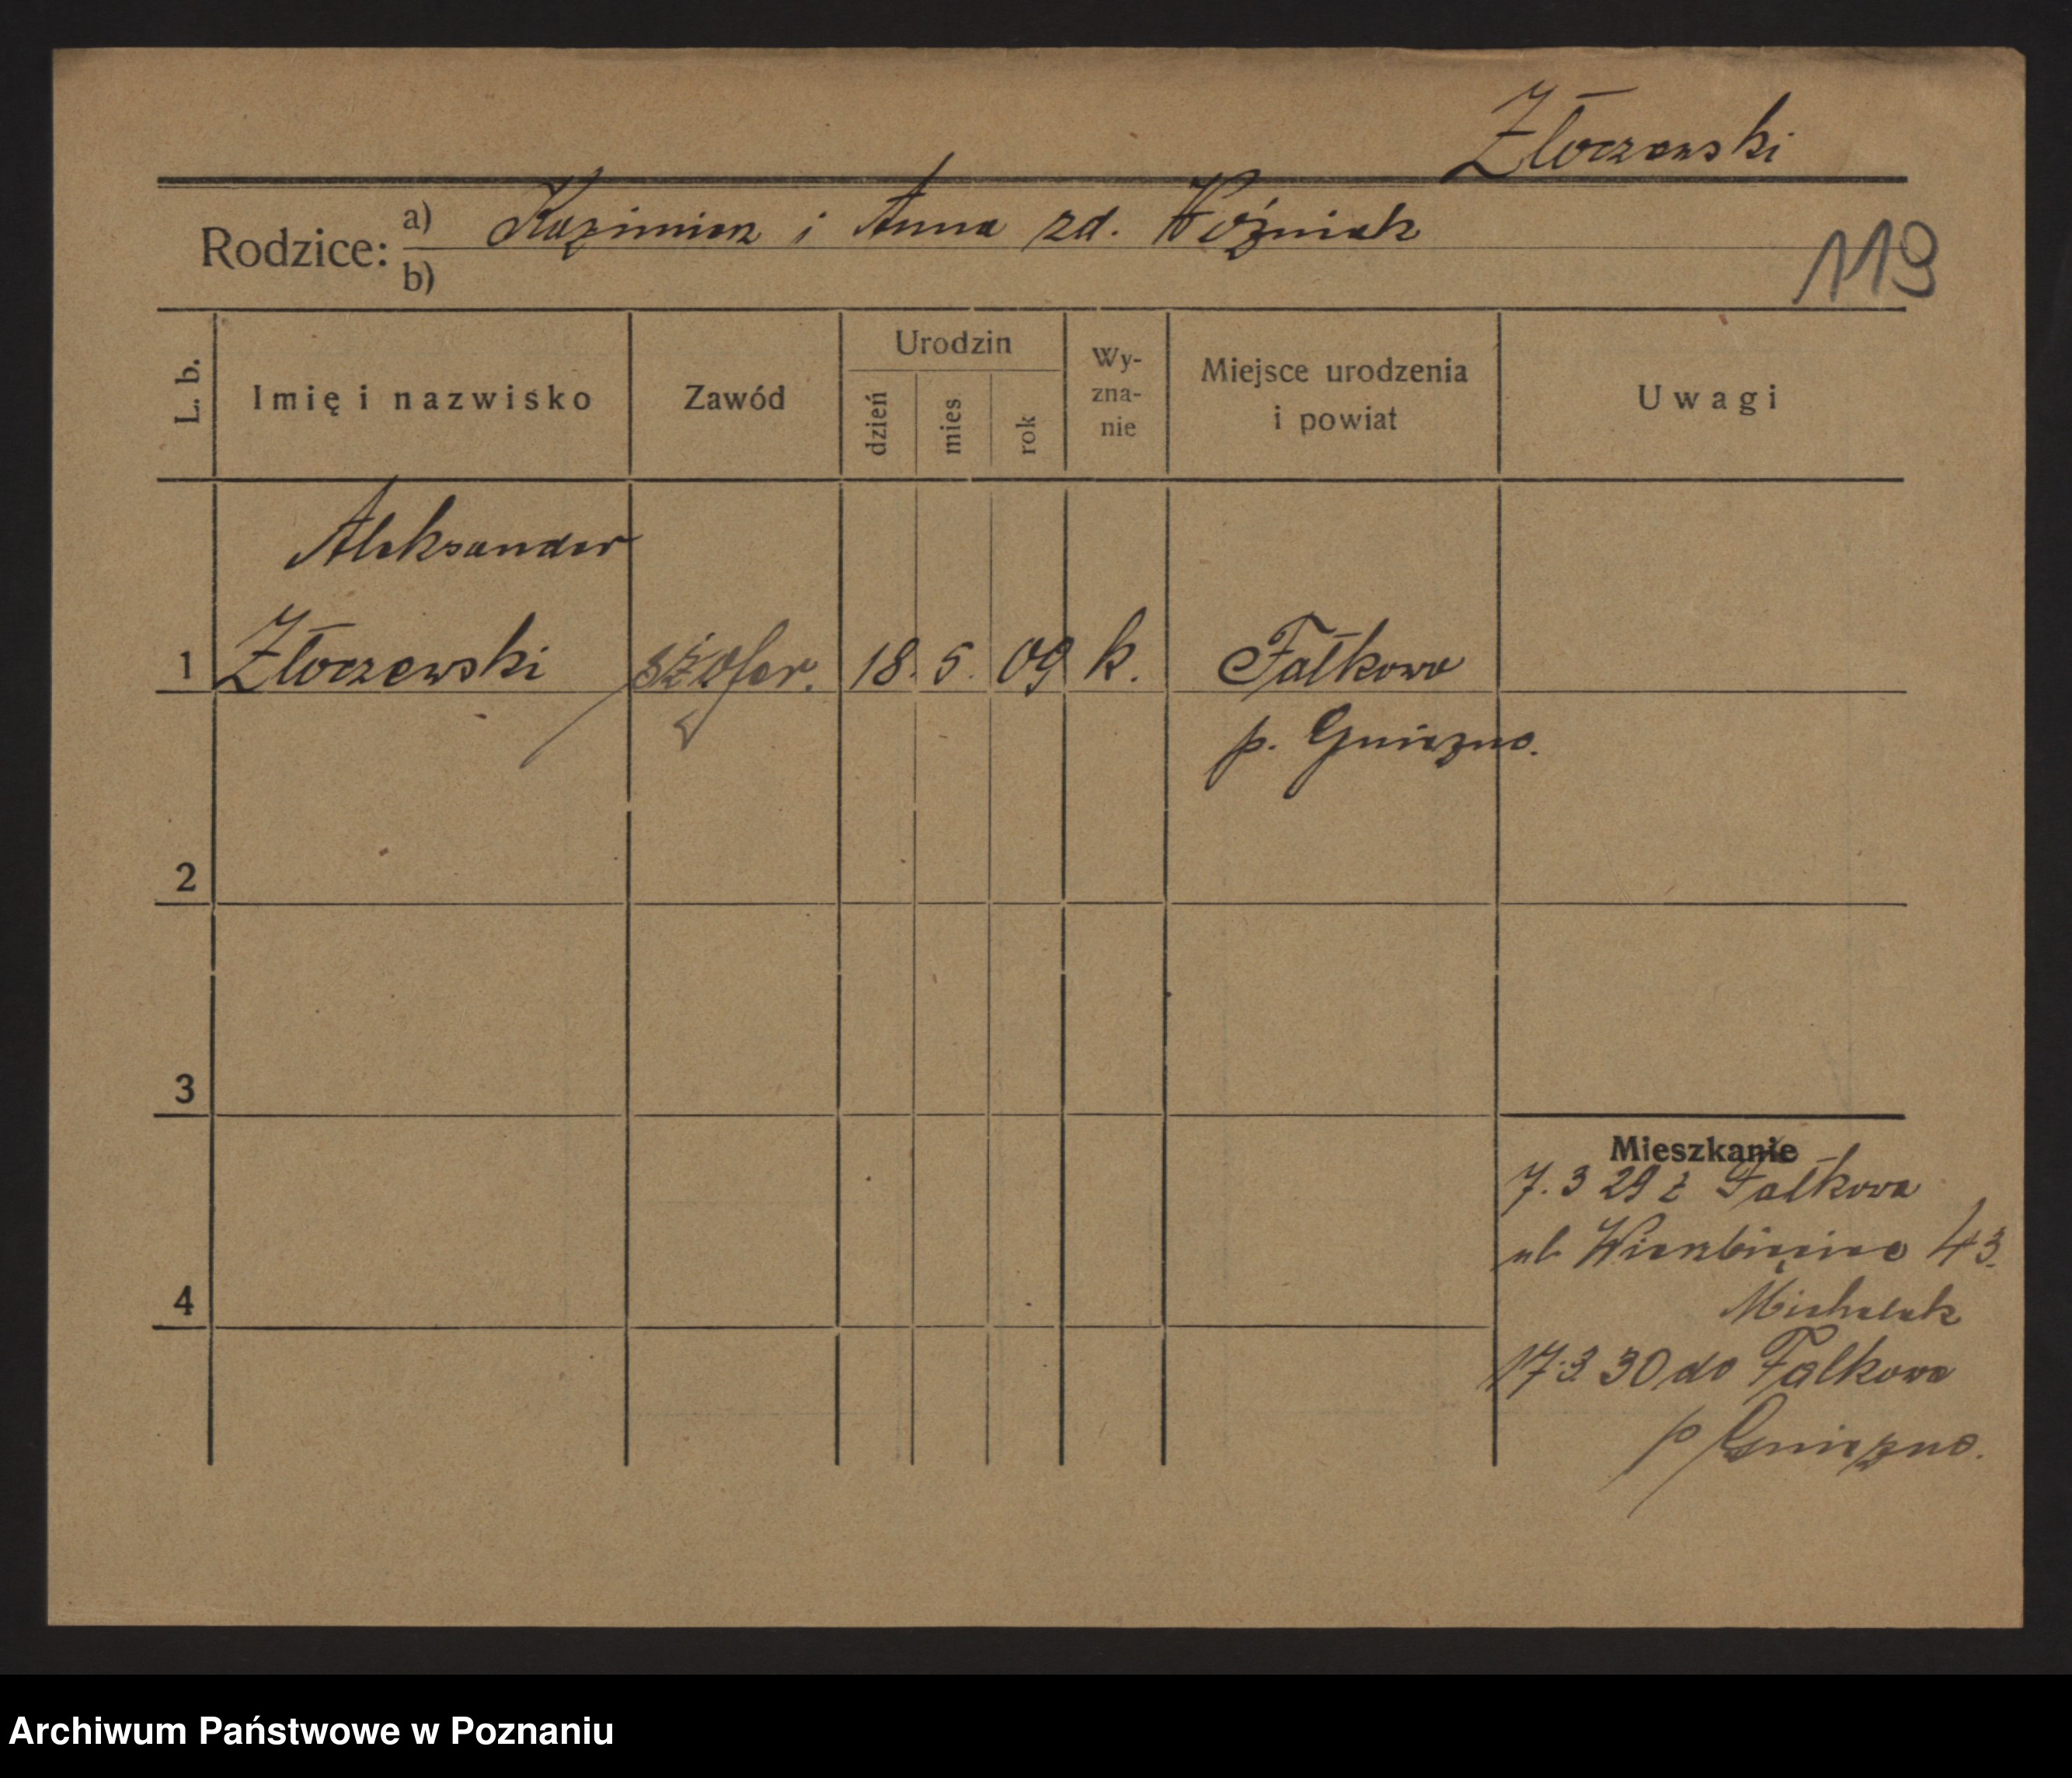 Złoczewski
Rodzice: a) Kazimierz i Anna zd. Woźniak
b)
119
L. b.
Imię i nazwisko
Zawód
Urodzin
dzień
mies
rok
Wy-
zna-
nie
Miejsce urodzenia
i powiat
Uwagi
Aleksander
1 Złoczewski szofer. 18. 5. 09 k. Fałkowo
p. Gniezno.
2
3
4
Mieszkanie
7. 3 29 z Fałkowa
ul. Wierzbięcice 43.
Michalak
17.3. 30 do Fałkowa
p Gniezno.
Archiwum Państwowe w Poznaniu